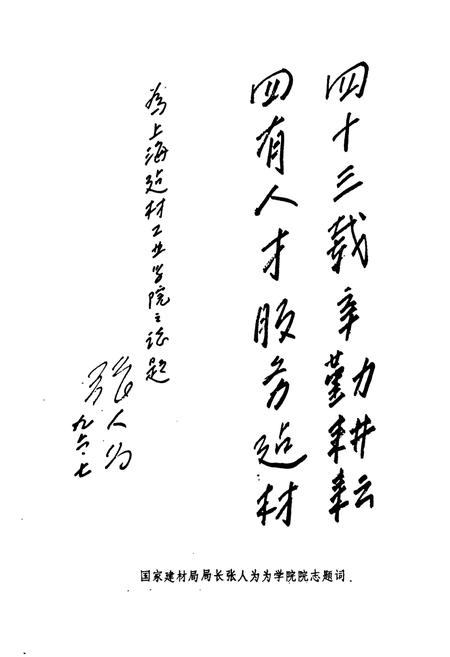 四十三载辛勤耕耘
四有人才服务建材
为上海建材工业学院之志题
张人为
九六.七
国家建材局局长张人为为学院院志题词